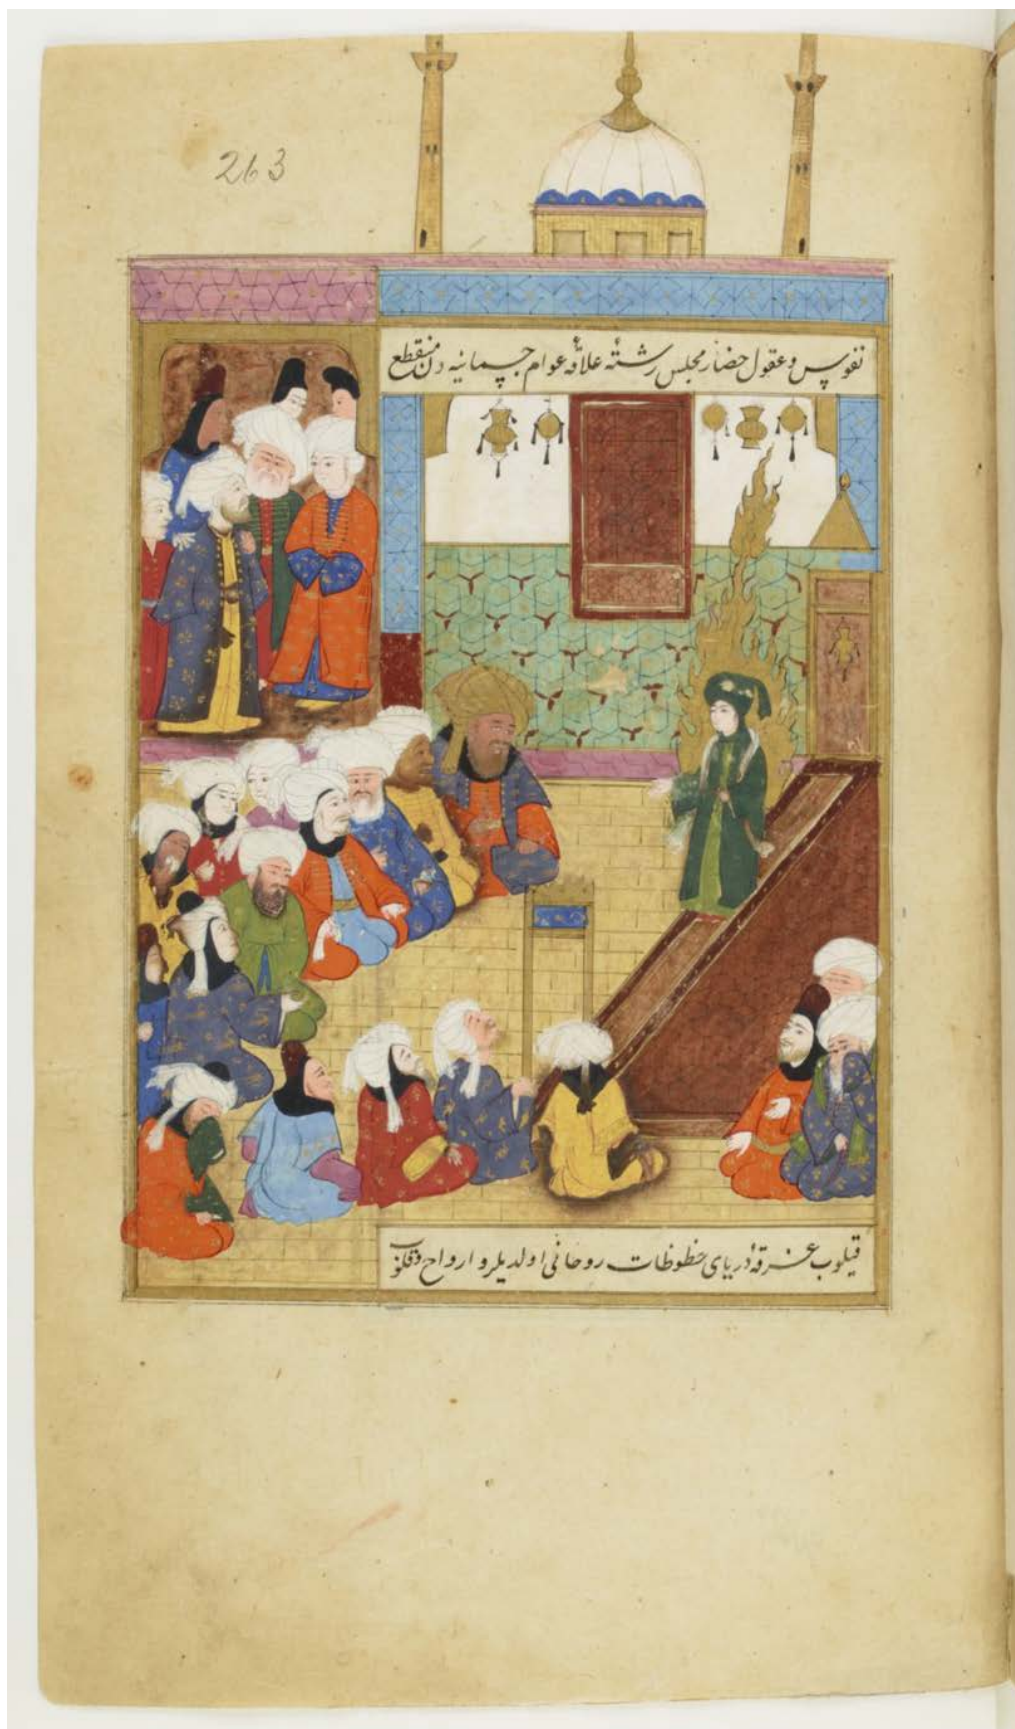 263
نفوس وعقول حضار مجلس رشتهٔ علاقهٔ عوام جسمانیه دن منقطع
قیلوب غرقهٔ دریای حظوظات روحانی اولدیلر و ارواح و قلوب